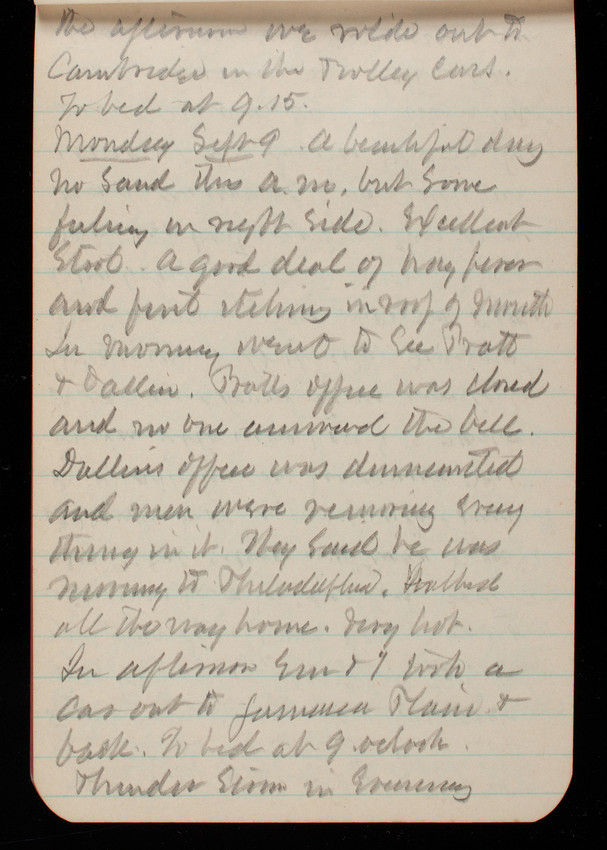 the afternoon we rode out to
Cambridge in the Trolley Cars.
To bed at 9.15.
Monday Sept 9 A beautiful day
No sand this a.m. but some
feeling in right side. Excellent
Stool. A good deal of hay fever
and first itching in roof of mouth
In morning went to see Pratt
& Dallin. Pratts office was closed
and no one answered the bell.
Dallins office was dismantled
and men were removing every
thing in it. They said he was
moving to Philadelphia. Walked
all the way home. Very hot.
In afternoon Em & I took a
car out to Jamaica Plain &
back. To bed at 9 oclock.
Thunder Storm in Evening